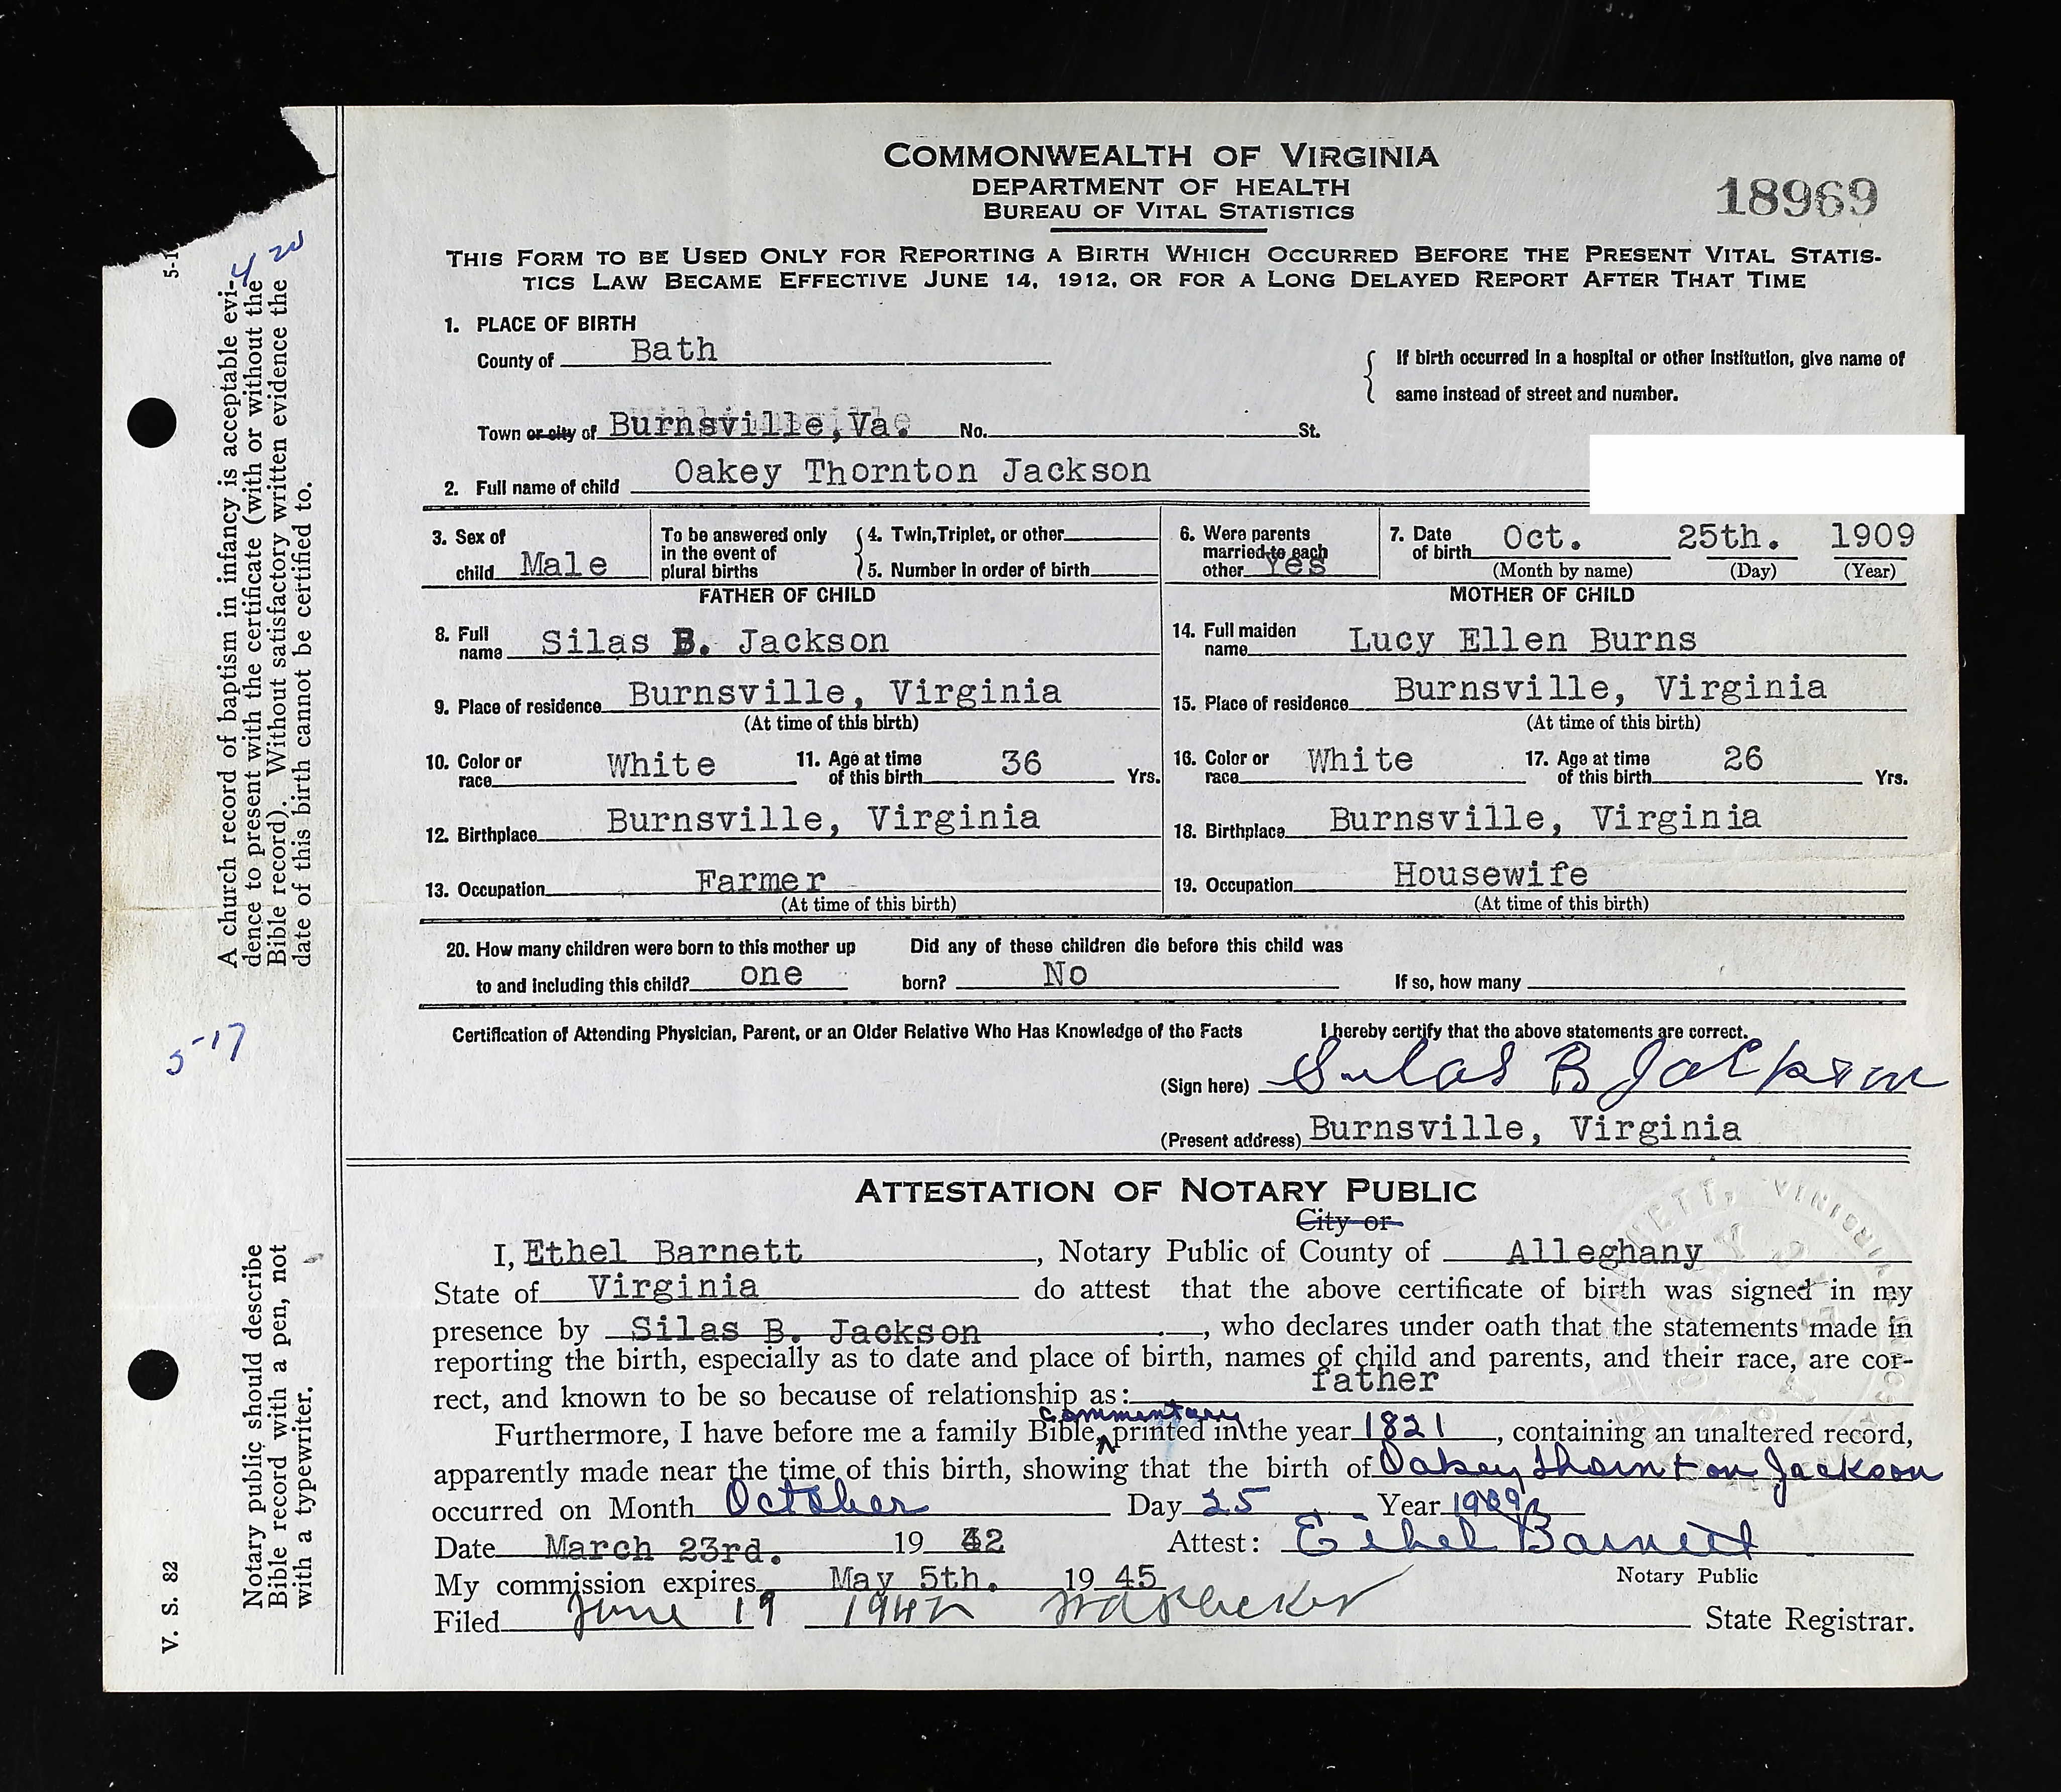 COMMONWEALTH OF VIRGINIA
DEPARTMENT OF HEALTH
BUREAU OF VITAL STATISTICS
18969
THIS FORM TO BE USED ONLY FOR REPORTING A BIRTH WHICH OCCURRED BEFORE THE PRESENT VITAL STATIS-
TICS LAW BECAME EFFECTIVE JUNE 14, 1912, OR FOR A LONG DELAYED REPORT AFTER THAT TIME
1. PLACE OF BIRTH
County of Bath
If birth occurred in a hospital or other institution, give name of
same instead of street and number.
Town or city of Burnsville, Va. No. St.
2. Full name of child Oakey Thornton Jackson
3. Sex of child Male
To be answered only in the event of plural births
4. Twin, Triplet, or other
5. Number in order of birth
6. Were parents married to each other Yes
7. Date of birth Oct. 25th. 1909
(Month by name) (Day) (Year)
FATHER OF CHILD
8. Full name Silas B. Jackson
9. Place of residence Burnsville, Virginia
(At time of this birth)
10. Color or race White 11. Age at time of this birth 36 Yrs.
12. Birthplace Burnsville, Virginia
13. Occupation Farmer
(At time of this birth)
MOTHER OF CHILD
14. Full maiden name Lucy Ellen Burns
15. Place of residence Burnsville, Virginia
(At time of this birth)
16. Color or race White 17. Age at time of this birth 26 Yrs.
18. Birthplace Burnsville, Virginia
19. Occupation Housewife
(At time of this birth)
20. How many children were born to this mother up Did any of these children die before this child was
to and including this child? one born? No If so, how many
Certification of Attending Physician, Parent, or an Older Relative Who Has Knowledge of the Facts I hereby certify that the above statements are correct.
(Sign here) Silas B Jackson
(Present address) Burnsville, Virginia
ATTESTATION OF NOTARY PUBLIC
City or
I, Ethel Barnett, Notary Public of County of Alleghany
State of Virginia do attest that the above certificate of birth was signed in my
presence by Silas B. Jackson, who declares under oath that the statements made in
reporting the birth, especially as to date and place of birth, names of child and parents, and their race, are cor-
rect, and known to be so because of relationship as: father
commentary
Furthermore, I have before me a family Bible, printed in the year 1821, containing an unaltered record,
apparently made near the time of this birth, showing that the birth of Oakey Thornton Jackson
occurred on Month October Day 25 Year 1909
Date March 23rd. 19 42 Attest: Ethel Barnett
My commission expires May 5th. 19 45 Notary Public
Filed June 19 1942 State Registrar.
5-1
4 20
A church record of baptism in infancy is acceptable evi-
dence to present with the certificate (with or without the
Bible record). Without satisfactory written evidence the
date of this birth cannot be certified to.
5-17
Notary public should describe
Bible record with a pen, not
with a typewriter.
V. S. 82